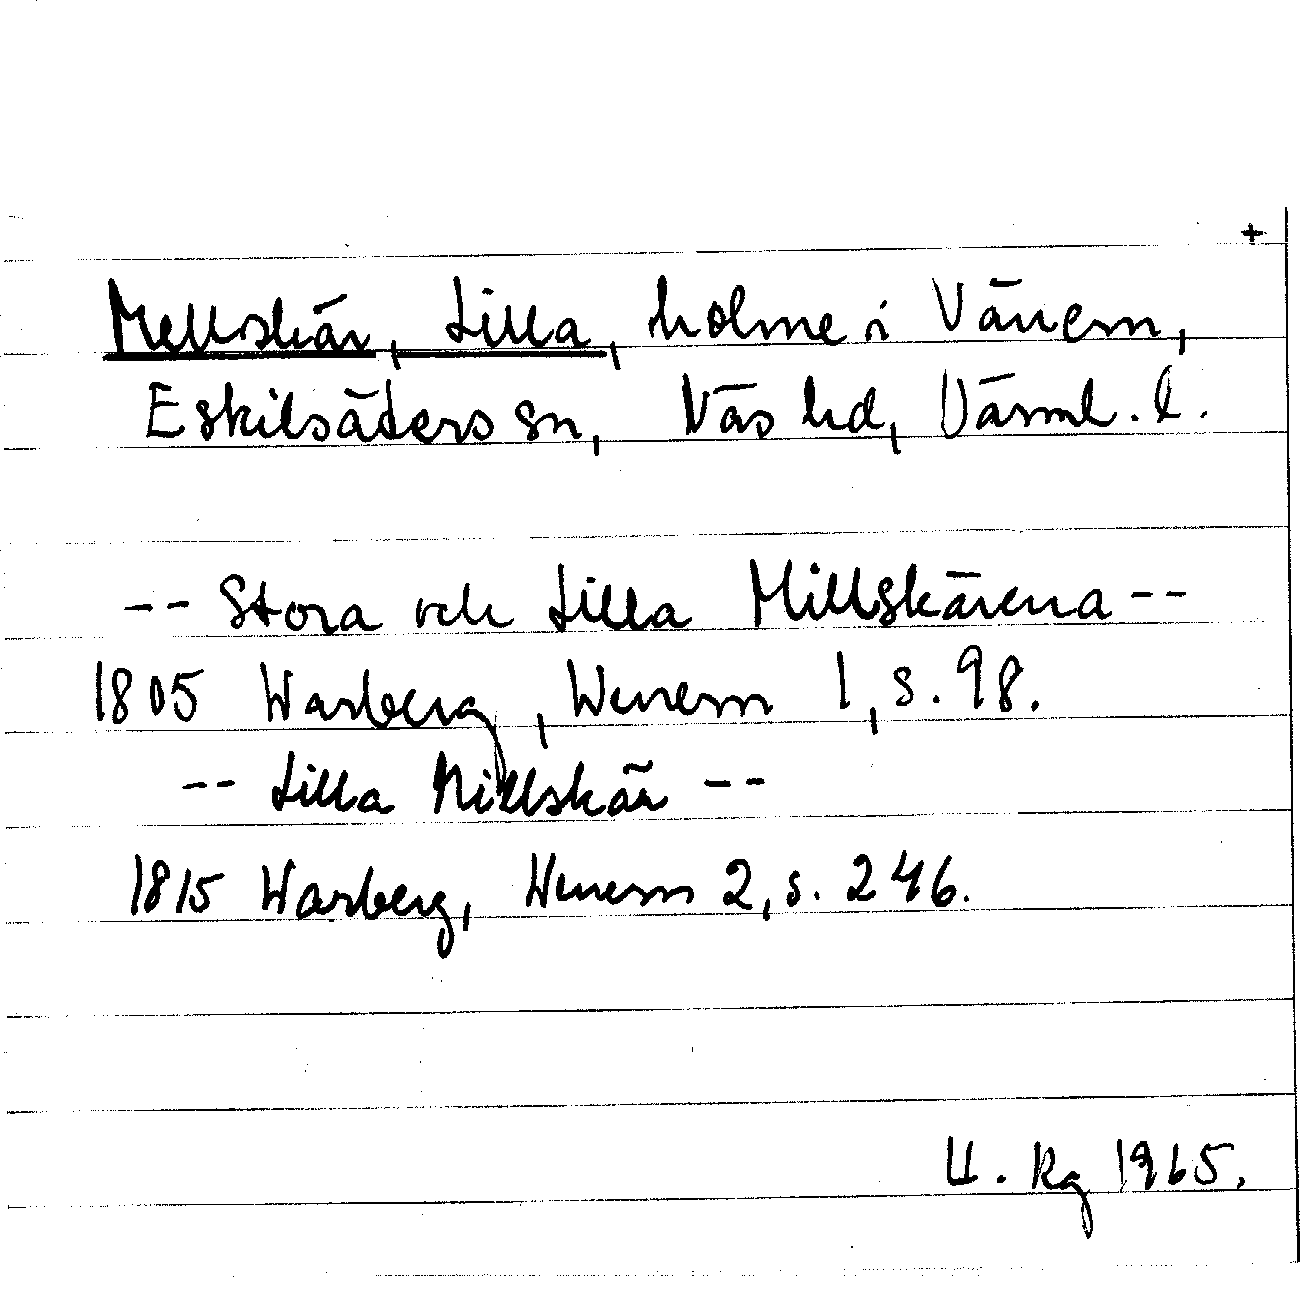 +
Mellskär, Lilla, holme i Vänern,
Eskilsäters sn, Näs hd, Värml. l.
-- Stora och Lilla Millskärena --
1805 Warberg, Wenern 1, s. 98.
-- Lilla Millskär --
1815 Warberg, Wenern 2, s. 246.
U. Rg 1965.